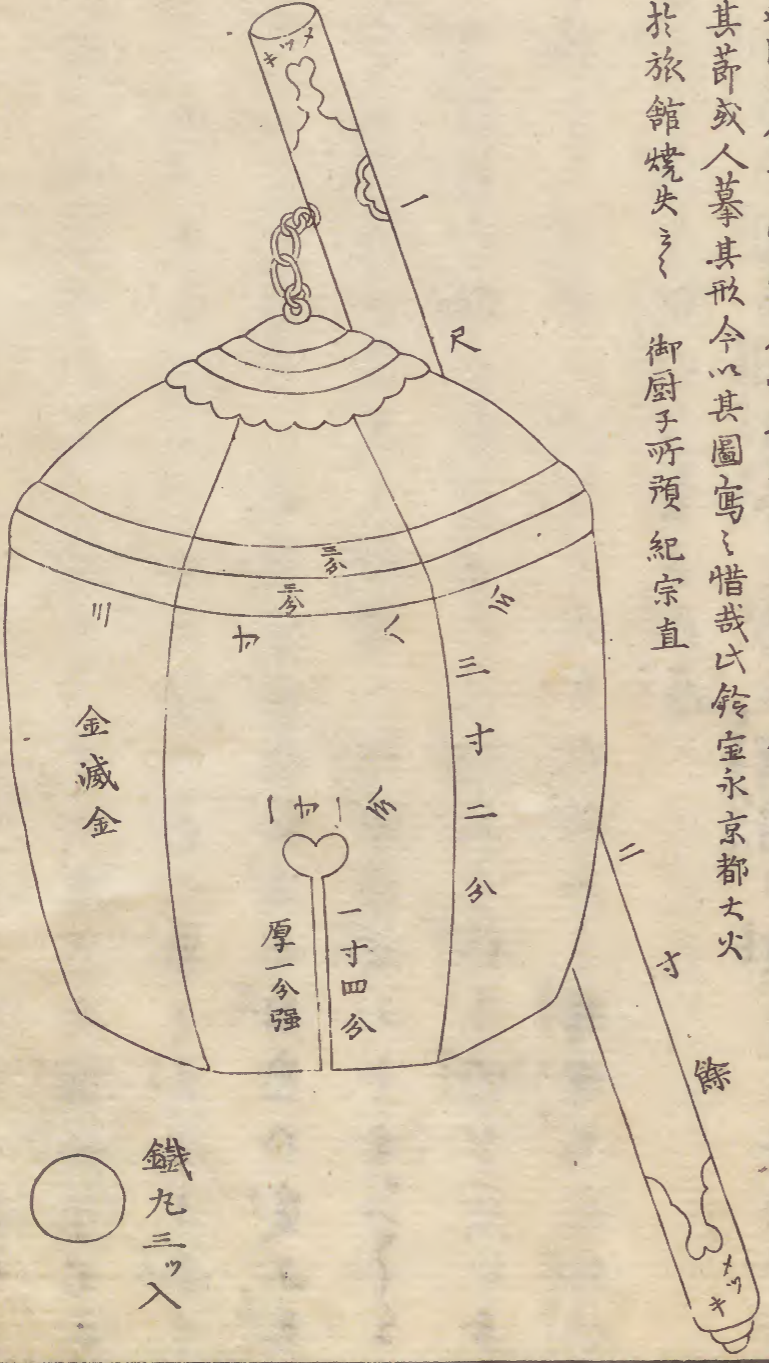 其節或人摹其形今以其圖寫〻惜哉此鈴宝永京都大火
於旅舘燒失云〻　御厨子所預 紀宗直
メツキ
一尺
二寸餘
メツキ
三分
三分
三寸二分
金滅金
一寸四分
厚一分强
鐵丸三ツ入